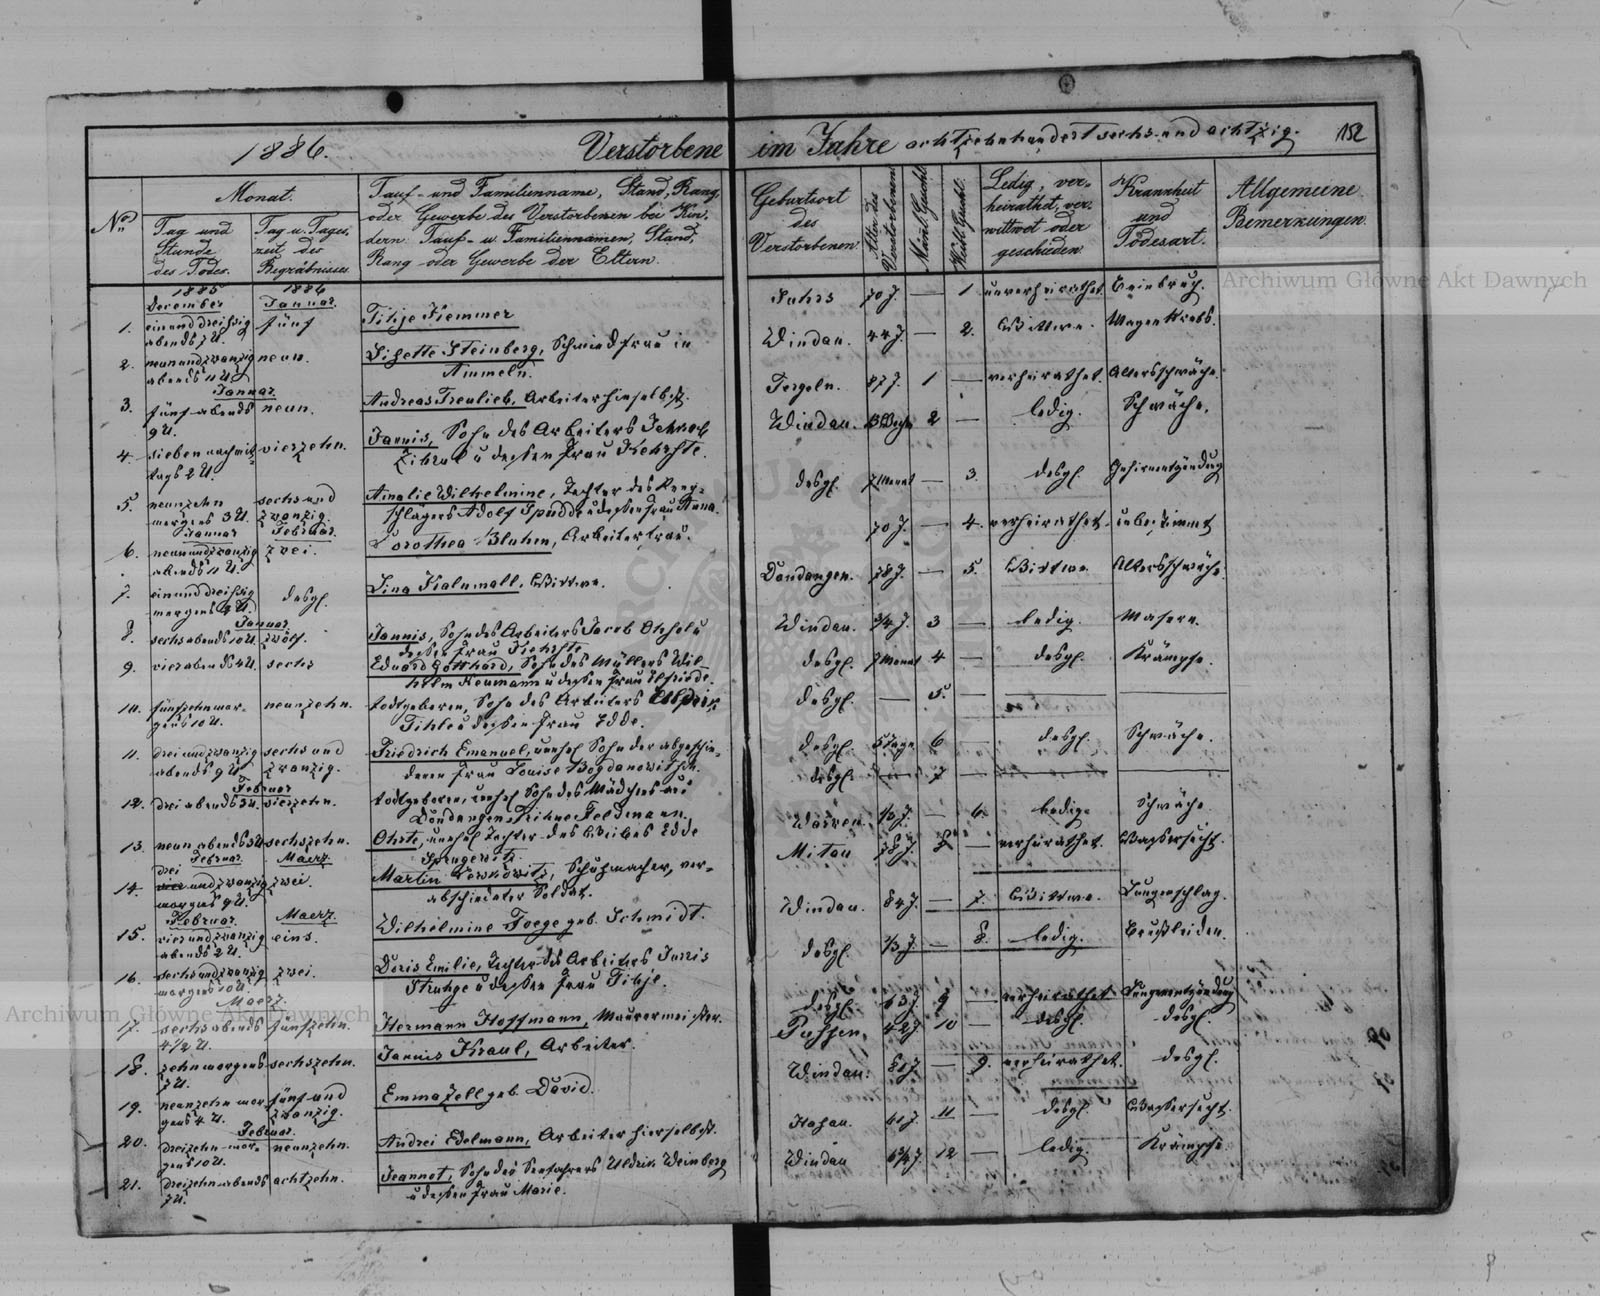 1886. Verstorbene im Jahre achtzehnhundert sechs und achtzig. 152
No.
Monat.
Tag und
Stunde
des Todes.
Tag u. Tages,
zeit des
Begräbnisses
Tauf- und Familienname, Stand, Rang,
oder Gewerbe des Verstorbenen bei Kin,
dern: Tauf- u. Familiennamen, Stand,
Rang oder Gewerbe der Eltern.
Geburtsort
des
Verstorbenen.
Alter des
Verstorbenen
Männl. Geschl.
Weibl. Geschl.
Ledig, ver-
heirathet, ver-
wittwet oder
geschieden.
Krankheit
und
Todesart.
Allgemeine
Bemerkungen.
1885 1886
December Januar.
1. ein und dreißig fünf Tihje Kiemmer Suhrs 70 J. — 1 unverheirathet Beinbruch.
abends 7 U.
2. neunundzwanzig neun. Lisette Steinberg, Schmiedsfrau in Windau. 44 J. — 2. Wittwe. Magenkrebs.
abends 11 U. Ammeln.
Januar
3. fünf abends neun. Andreas Treulieb, Arbeiter hieselbst. Tergeln. 87 J. 1 — verheirathet. Altersschwäche.
9 U.
4. sieben nachmit- vierzehn. Jannis, Sohn des Arbeiters Jehkab Windau. 2 — ledig. Schwäche.
tags 2 U. u dessen Frau
5. neunzehn sechs und Amalie Wilhelmine, Tochter des desgl. 7 Monat — 3. desgl. Gehirnentzündung
morgens 3 U. zwanzig. Adolf u dessen Frau Anna.
Januar Februar.
6. neunundzwanzig zwei. Dorothea Bluhm, Arbeiterfrau. 70 J. — 4. verheirathet. unbestimmt
abends 11 U.
7. einunddreißig desgl. Lina Kalnwall, Wittwe. Dondangen. 78 J. — 5. Wittwe Altersschwäche.
morgens 4 U.
Januar
8. sechs abends 10 U. zwölf. Jannis, Sohn des Arbeiters Jacob Windau. 3/4 J. 3 — ledig. Masern.
dessen Frau
9. vier abends 4 U. sechs Eduard Gotthard, Sohn des Müllers Wil- desgl. 7 Monat 4 — desgl. Krämpfe.
helm Neumann u dessen Frau
10. fünfzehn mor- neunzehn. todtgeboren, Sohn des Arbeiters desgl. — 5. —
gens 10 U. u dessen Frau Edde.
11. drei und zwanzig sechs und Friedrich Emanuel, unehel Sohn der abgeschie- desgl. 5 Tage 6 — desgl. Schwäche.
abends 9 U. zwanzig. denen Frau Louise Bogdanowitsch.
Februar
12. drei abends 3 U. vierzehn. todtgeboren, unehel Sohn des Mädchens aus desgl. — 7 —
Dondangen Trihne Feldmann.
13. neun abends sechszehn. Ohrte, unehel Tochter des Weibes Edde Warwen 1/3 J. — 6. ledig. Schwäche
Februar Maerz
drei
14. und zwanzig zwei. Martin Lewkowitz, Schuhmacher, ver- Mitau 78 J. 8 — verheirathet. Wassersucht.
morgens 9 U. abschiedeter Soldat.
Februar. Maerz.
15. vier und zwanzig eins. Wilhelmine Foege geb. Schmidt. Windau. 84 J. — 7. Wittwe. Lungenschlag.
abends 2 U.
16. sechs und zwanzig zwei. Doris Emilie, Tochter des Arbeiters Jurris desgl. 1/3 J. — 8. ledig. Brustleiden.
morgens 10 U. Struhge u dessen Frau Tihje.
Maerz.
17. sechs abends fünfzehn. Hermann Hoffmann, Maurermeister. desgl. 63 J. 9 — verheirathet Lungenentzündung
4 1/2 U.
18. zehn morgens sechszehn. Jannis Kraul, Arbeiter. Pussen. 42 J. 10 — desgl. desgl.
7 U.
19. neunzehn mor- fünf und Emma Zell geb. David. Windau. 81 J. — 9. verheirathet. desgl.
gens 4 U. zwanzig.
Februar.
20. dreizehn mor- neunzehn. Andrei Edelmann, Arbeiter hierselbst. Hasau. 61 J. 11 — desgl. Wassersucht.
gens 10 U.
21. dreizehn abends achtzehn. Jeannot, Sohn des Seefahrers Uldrik Weinberg Windau 12 — ledig. Krämpfe.
7 U. u dessen Frau Marie.
Archiwum Główne Akt Dawnych
Archiwum Główne Akt Dawnych